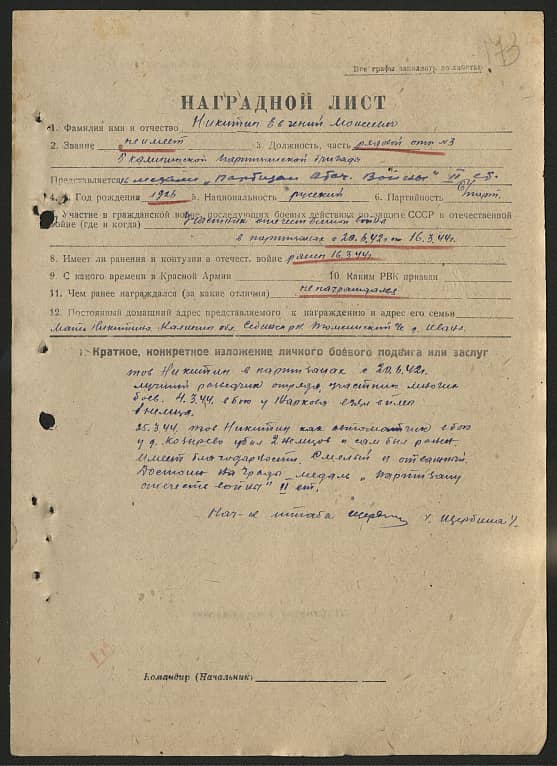 173
Все графы заполнять полностью
НАГРАДНОЙ ЛИСТ
1. Фамилия имя и отчество Никитин Евгений Моисеевич
2. Звание не имеет 3. Должность, часть рядовой отр №3
Калининской партизанской бригады
Представляется к медали „Партизан Отеч. Войны" II ст.
4. Год рождения 1926 5. Национальность русский 6. Партийность б/парт.
7. Участие в гражданской войне, последующих боевых действиях по защите СССР и отечественной
войне (где и когда) Участник отечественной войны
в партизанах с 20.6.42г по 16.3.44г.
8. Имеет ли ранения и контузии в отечест. войне ранен 16.3.44г.
9. С какого времени в Красной Армии 10. Каким РВК призван
11. Чем ранее награждался (за какие отличия) не награждался
12. Постоянный домашний адрес представляемого к награждению и адрес его семьи
Мать Никитина Калининс обл. Себежск р-н
Краткое, конкретное изложение личного боевого подвига или заслуг
тов Никитин в партизанах с 20.6.42г.
лучший разведчик отряда, участник многих
боев. 4.3.44. в бою у Жарково взял в плен
немца.
25.3.44. тов Никитин как автоматчик в бою
у д. Козырево убил 2 немцов и сам был ранен.
Имеет благодарности. Смелый и отважный.
Достоин награды медаль „Партизану
отечествен войны" II ст.
Нач-к штаба /Щербина/.
Командир (Начальник)